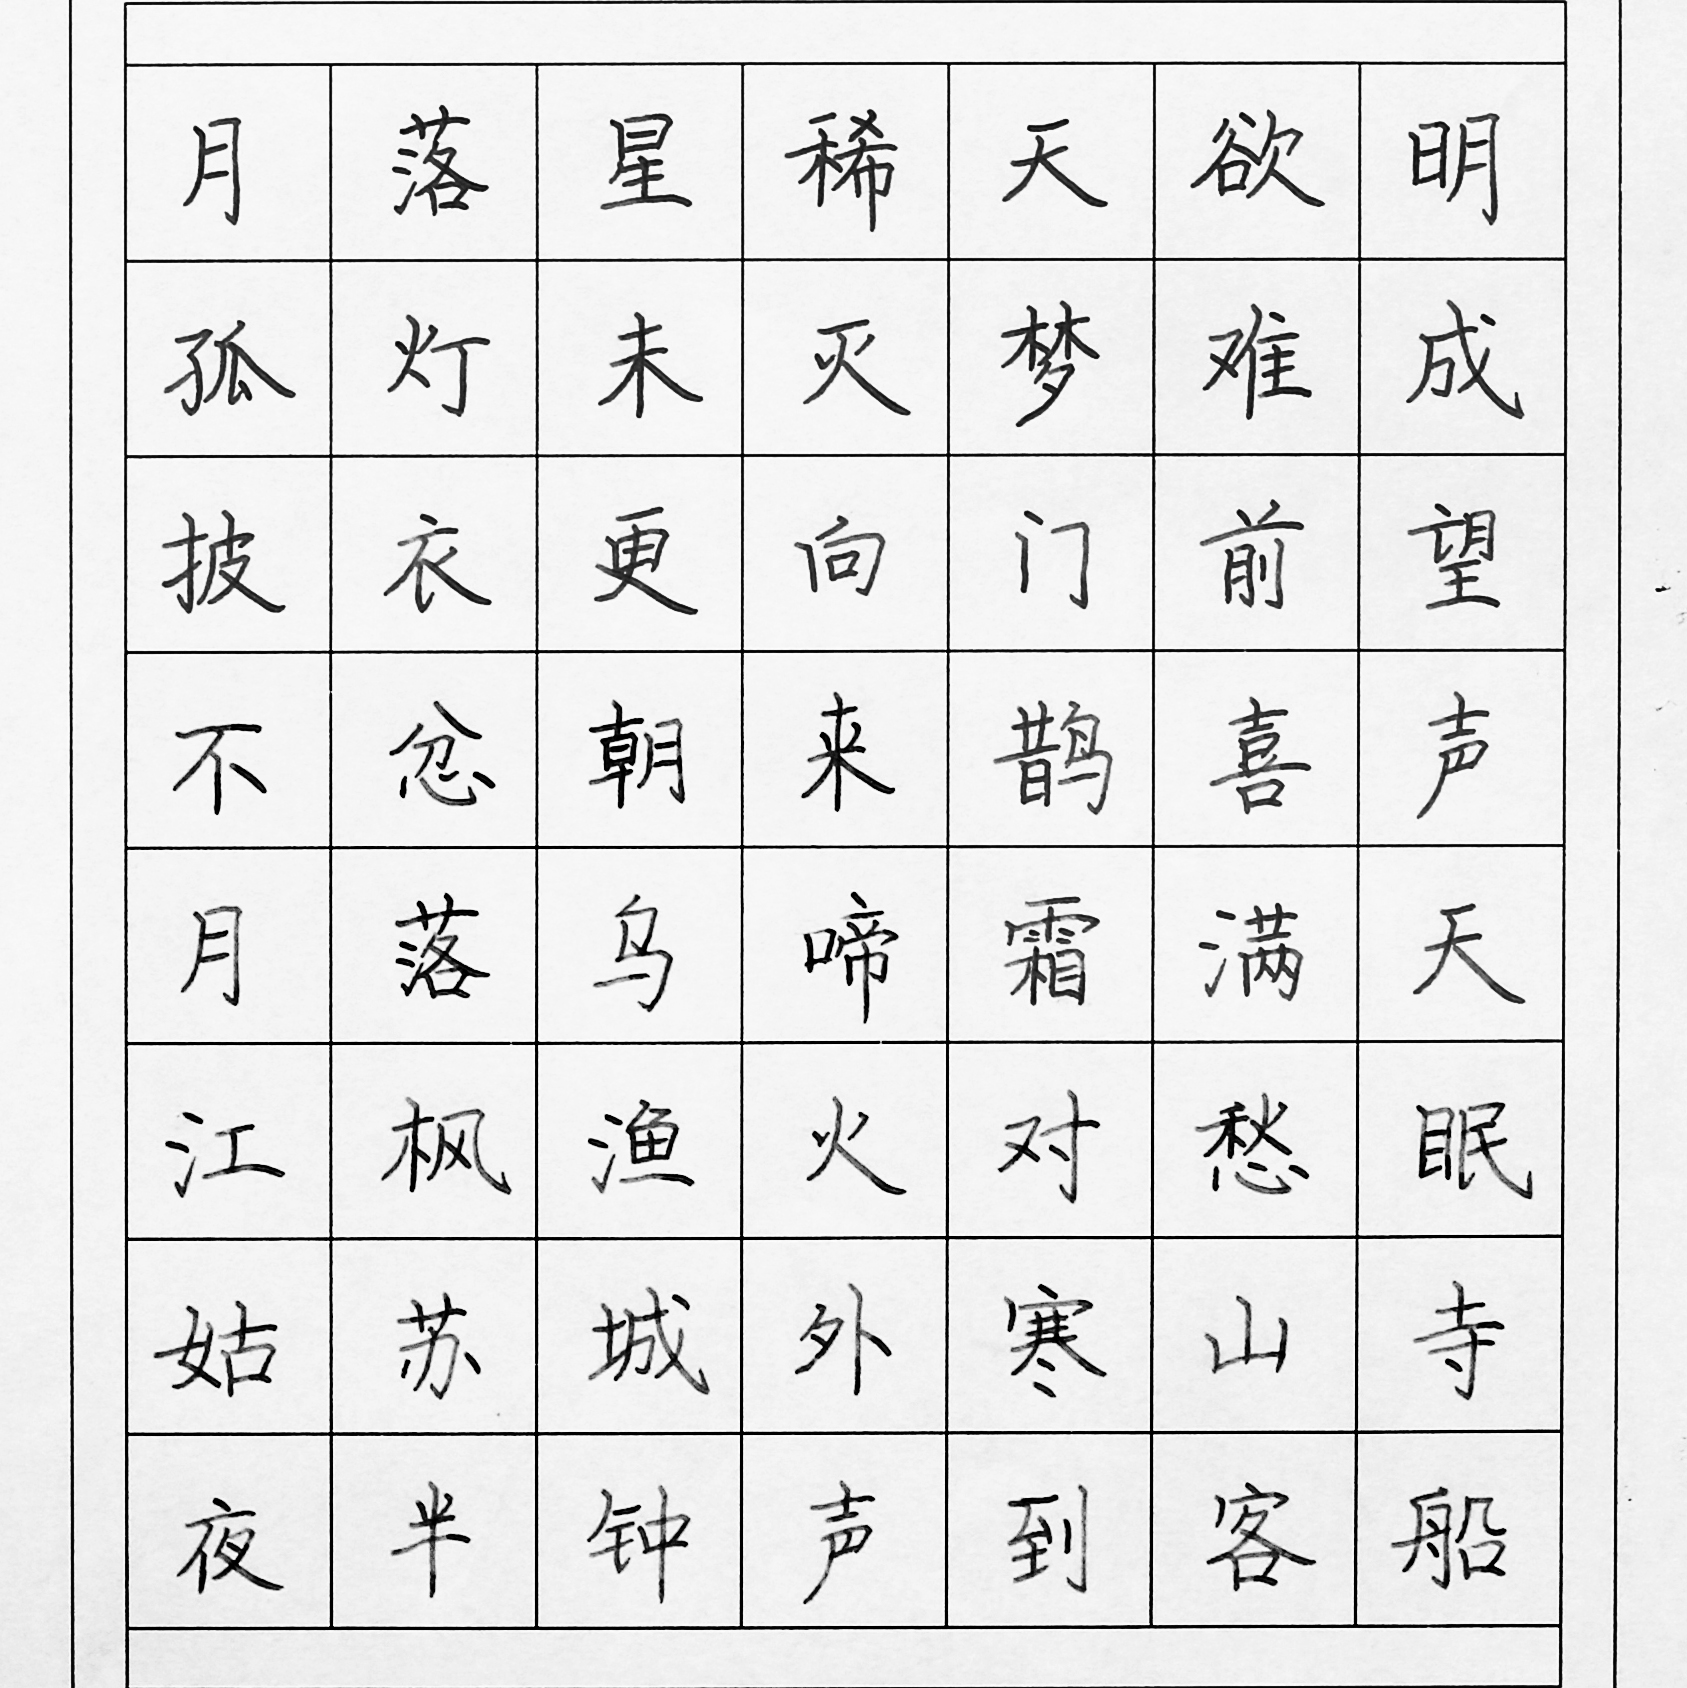 月落星稀天欲明
孤灯未灭梦难成
披衣更向门前望
不忿朝来鹊喜声
月落乌啼霜满天
江枫渔火对愁眠
姑苏城外寒山寺
夜半钟声到客船